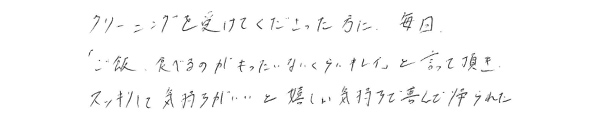 クリーニングを受けてくださった方に、毎回、
「ご飯、食べるのがもったいないくらいキレイ」と言って頂き
スッキリして気持ちがいいと嬉しい気持ちで喜んで帰られた